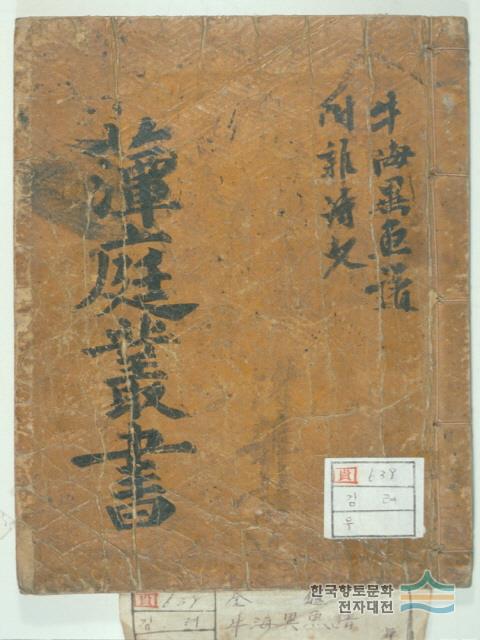 牛海異魚譜
附雜詩文
藫庭叢書
貴 639
김 려
우
貴 639
김 려
牛海異魚譜
한국향토문화
전자대전